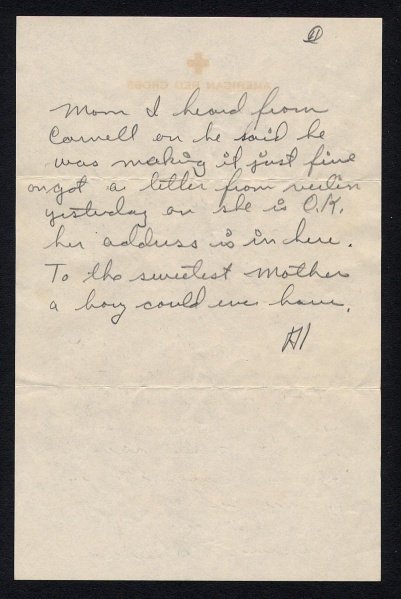 Mom I heard from
Carvell an he said he
was making it just fine
an got a letter from
yesterday an she is O.K.
her address is in here.
To the sweetest Mother
a boy could ever have.
Al
AMERICAN RED CROSS